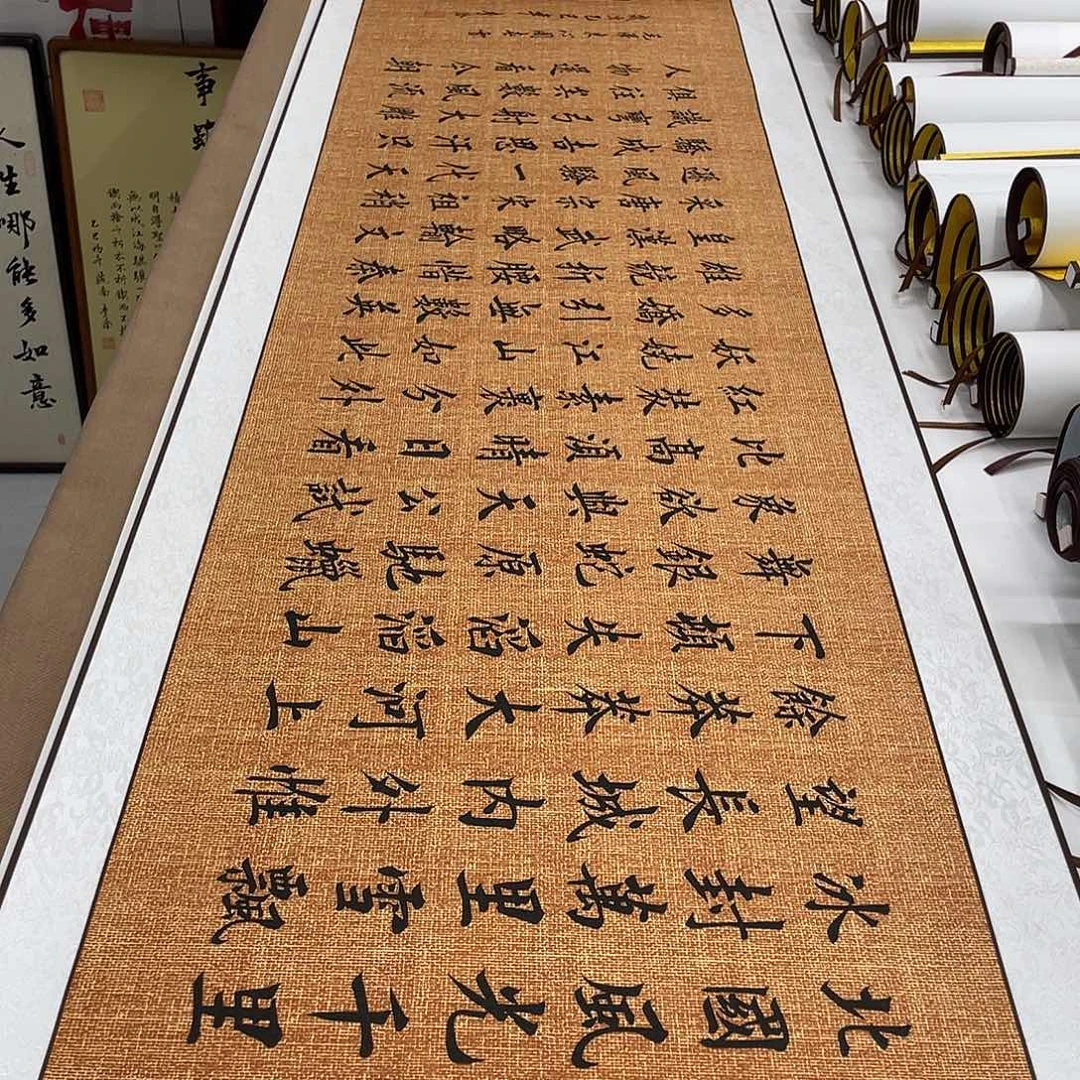 北國風光千里
冰封萬里雪飄
望長城內外惟
餘莽莽大河上
下頓失滔滔山
舞銀蛇原馳蠟
象欲與天公試
比高須晴日看
紅裝素裹分外
妖嬈江山如此
多嬌引無數英
雄競折腰惜秦
皇漢武略輸文
采唐宗宋祖稍
遜風騷一代天
驕成吉思汗只
識彎弓射大雕
俱往矣數風流
人物還看今朝
毛澤東沁園春雪
人生哪能多如意
事